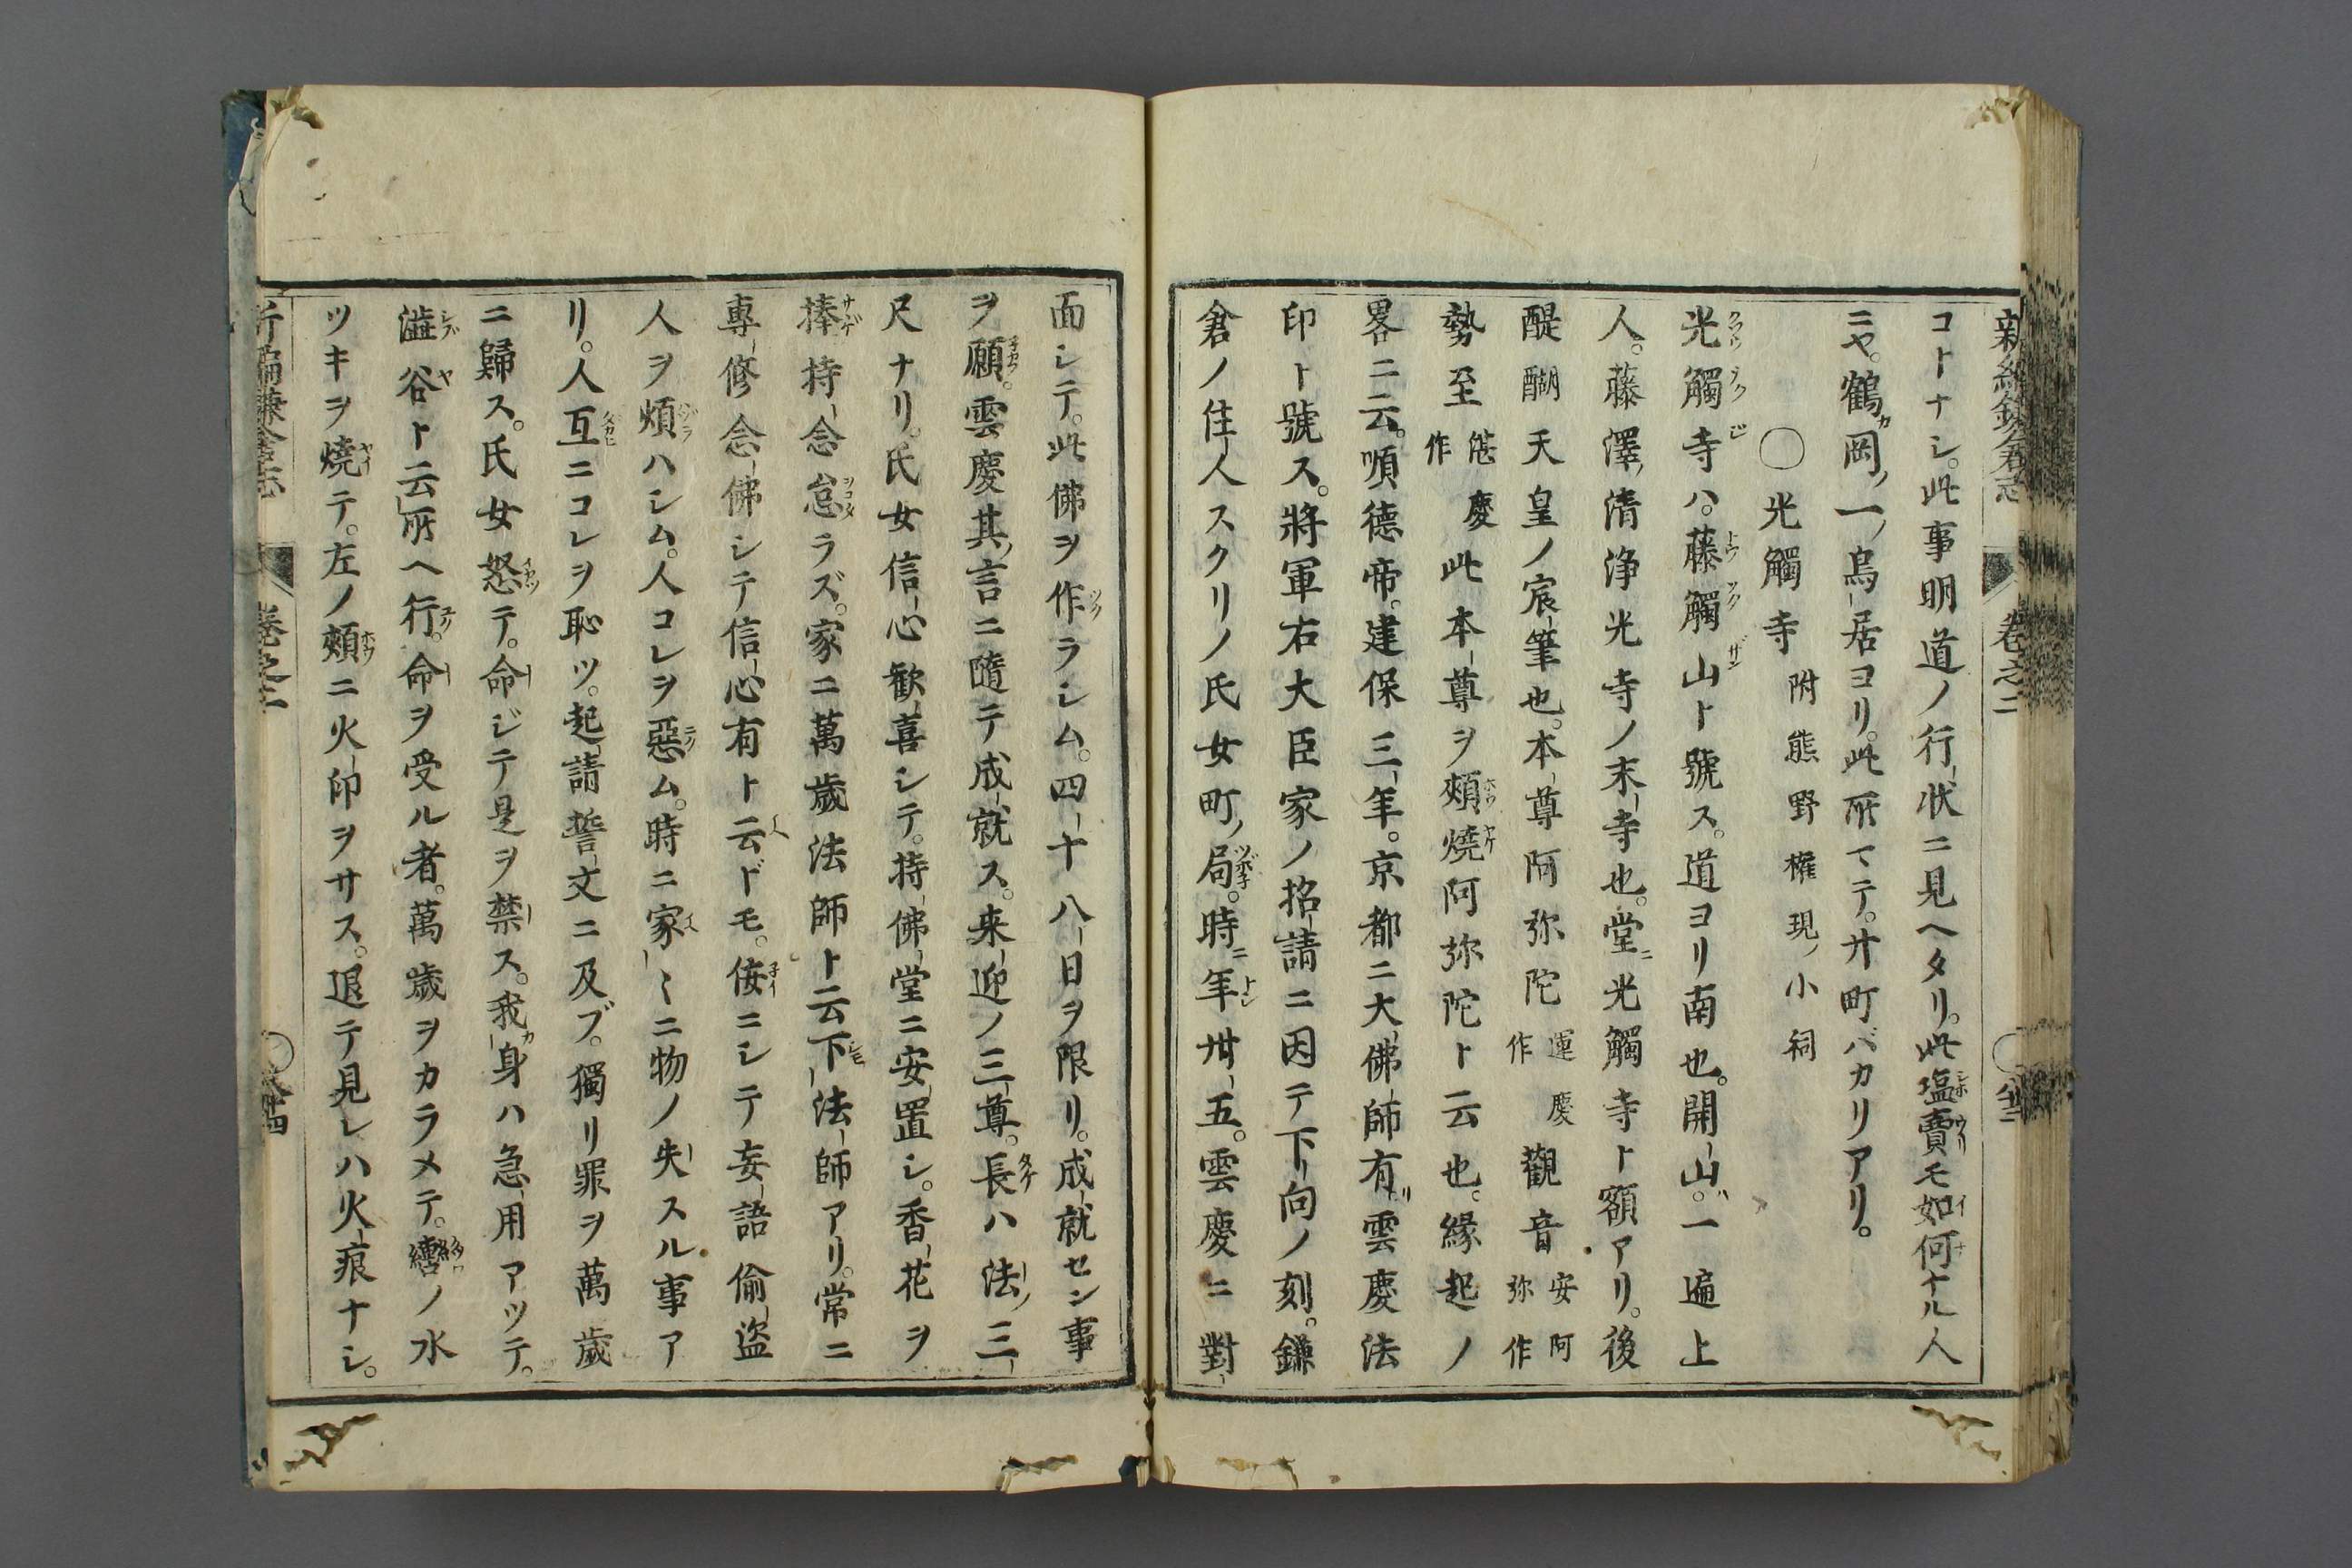 新編鎌倉志 卷之二
コトナシ。此事明道ノ行状ニ見ヘタリ。此塩賣モ如何ナル人
ニヤ。鶴岡ノ一ノ鳥居ヨリ。此所マテ。廿町バカリアリ。
○光觸寺 附熊野権現ノ小祠
光觸寺ハ。藤觸山ト號ス。道ヨリ南也。開山ハ。一遍上
人。藤澤ノ清浄光寺ノ末寺也。堂ニ光觸寺ト額アリ。後
醍醐天皇ノ宸筆也。本尊阿弥陀運慶作觀音安阿弥作
勢至湛慶作此本尊ヲ頬燒阿弥陀ト云也。縁起ノ
畧ニ云。順德帝。建保三年。京都ニ大佛師有リ雲慶法
印ト號ス。將軍右大臣家ノ招請ニ因テ下向ノ刻。鎌
倉ノ住人スクリノ氏女町ノ局。時ニ年卅五。雲慶ニ對
面シテ。此佛ヲ作ラシム。四十八日ヲ限リ。成就セン事
ヲ願。雲慶其ノ言ニ隨テ成就ス。来迎ノ三尊。長ハ法ノ三
尺ナリ。氏女信心歓喜シテ。持佛堂ニ安置シ。香花ヲ
捧持念怠ラズ。家ニ萬歳法師ト云下法師アリ。常ニ
專修念佛シテ信心有ト云ドモ。侫ニシテ妄語偷盗
人ヲ煩ハシム。人コレヲ惡ム。時ニ家々ニ物ノ失スル事ア
リ。人互ニコレヲ恥ツ。起請誓文ニ及ブ。獨リ罪ヲ萬歳
ニ歸ス。氏女怒テ。命ジテ是ヲ禁ス。我身ハ急用アツテ。
澁谷ト云所ヘ行。命ヲ受ル者。萬歳ヲカラメテ。轡ノ水
ツキヲ燒テ。左ノ頬ニ火印ヲサス。退テ見レハ火痕ナシ。
卷之二